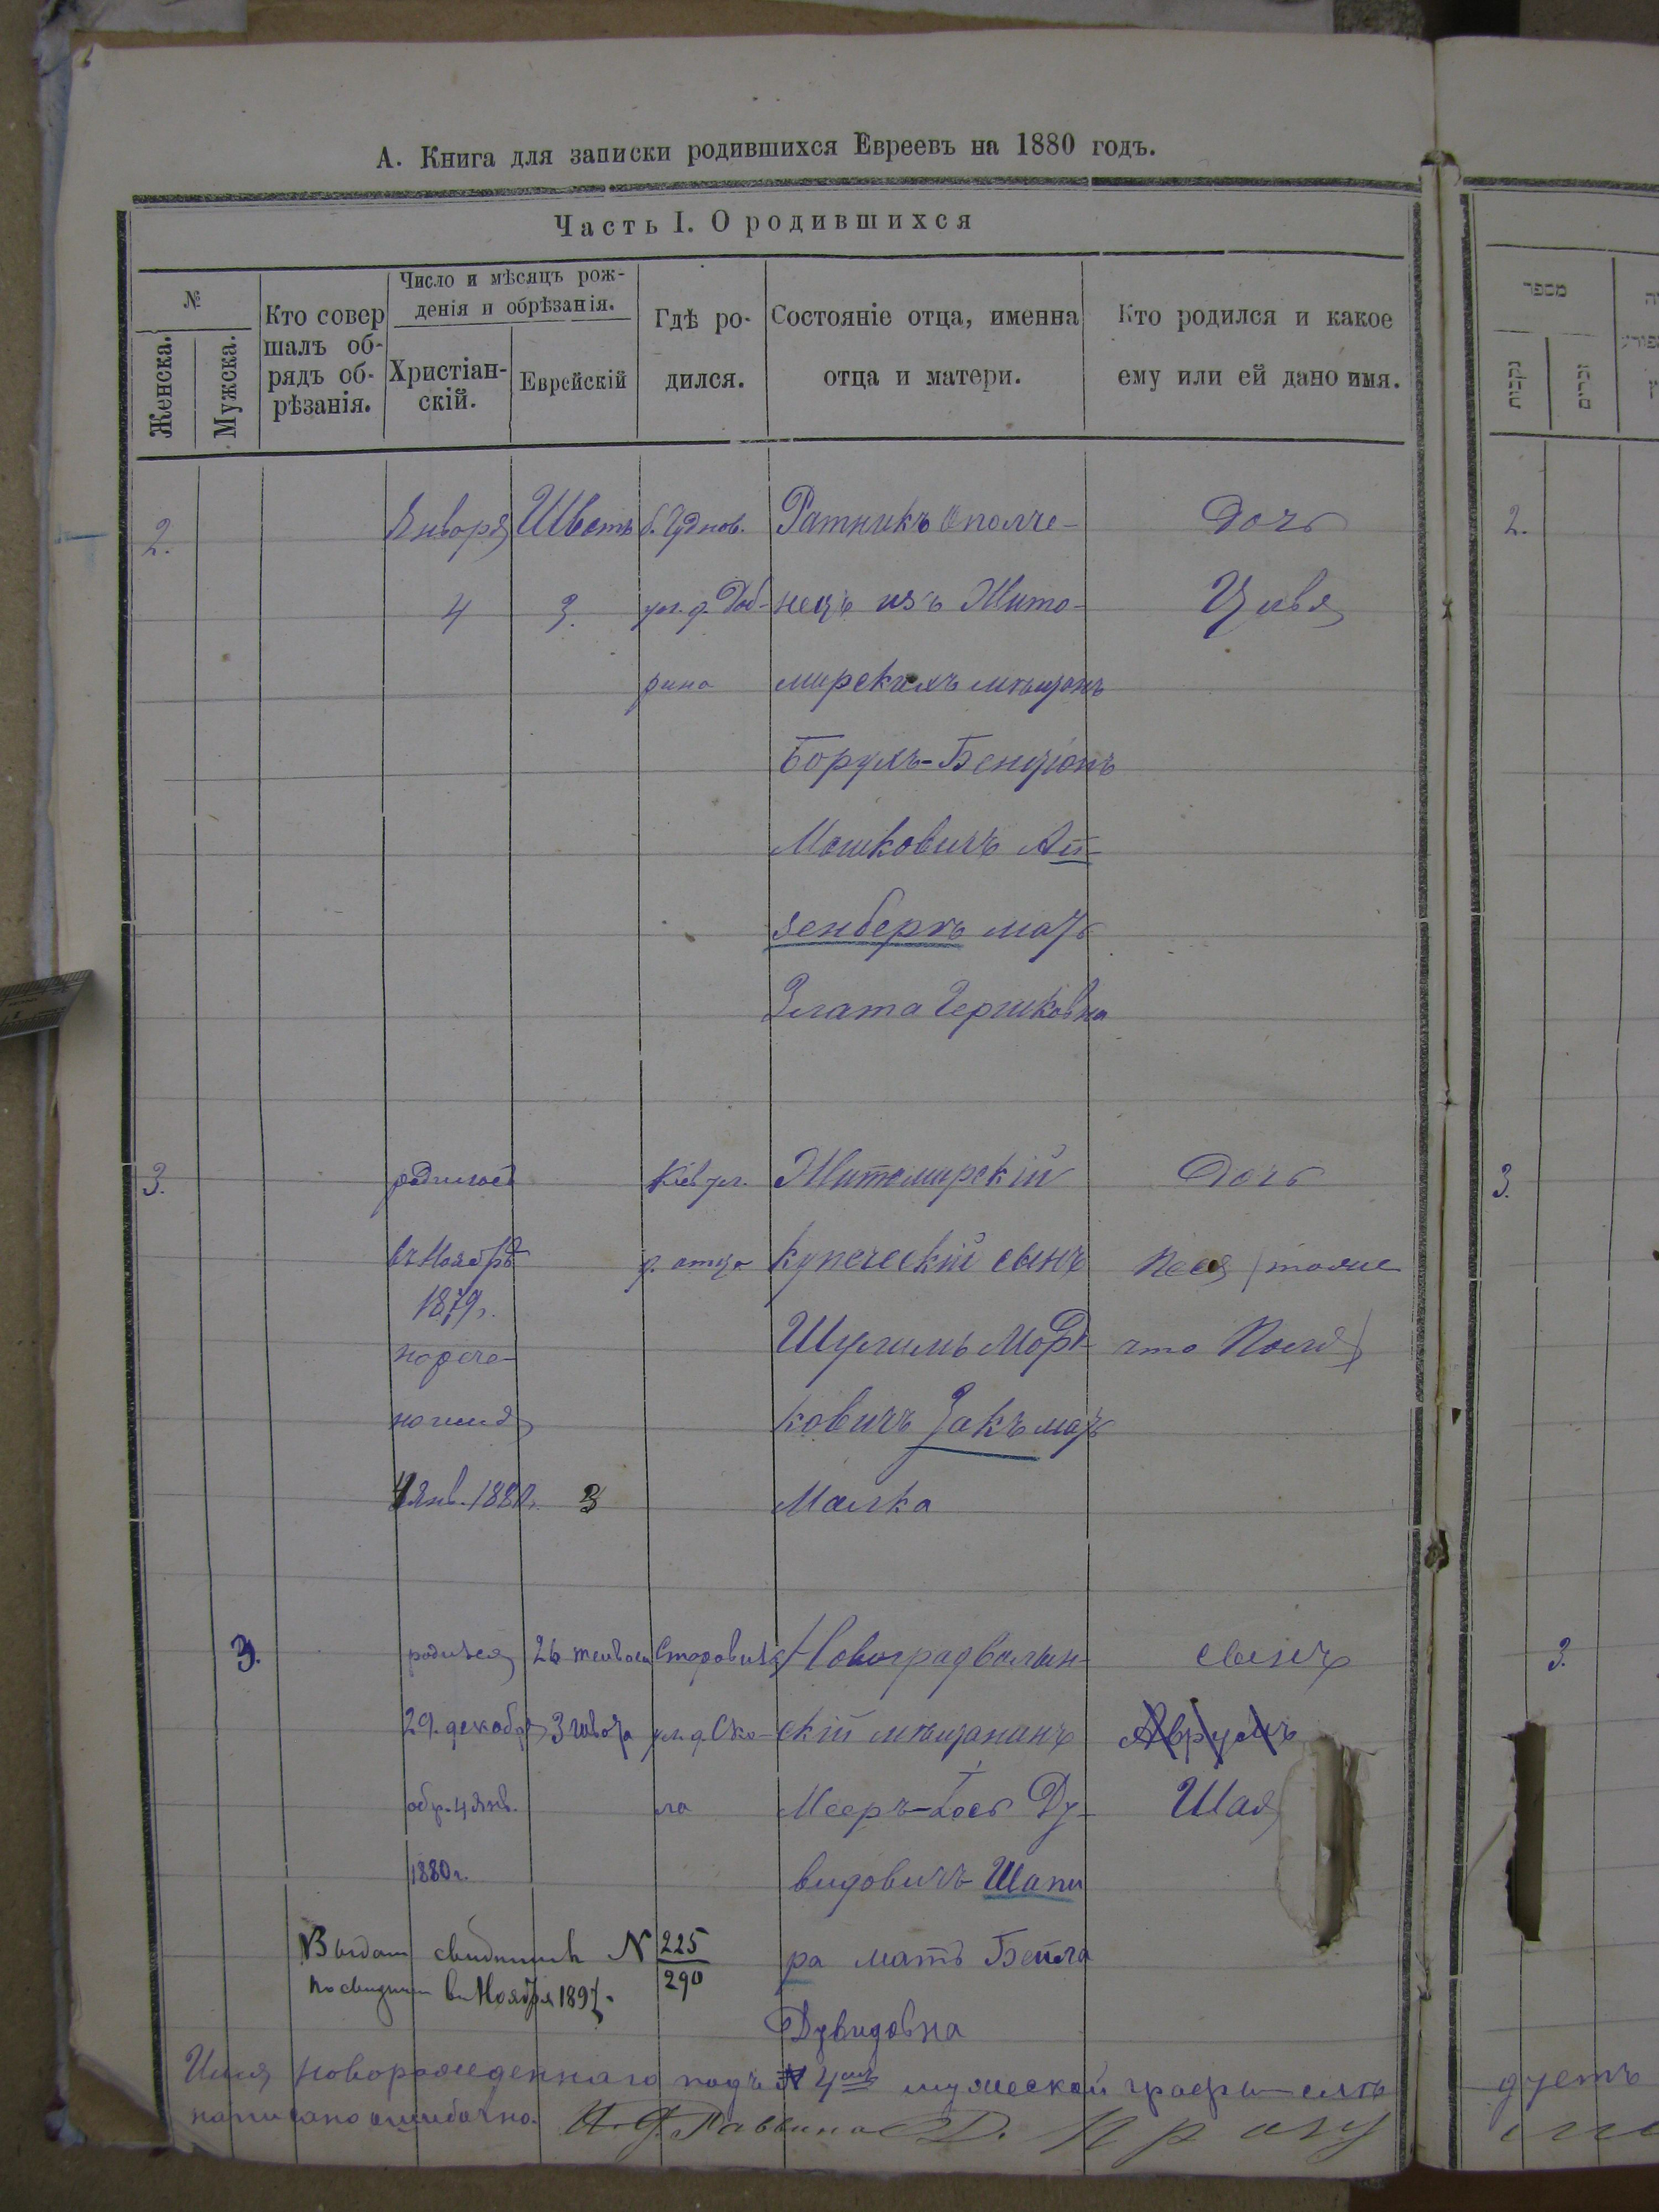 А. Книга для записки родившихся Евреевъ на 1880 годъ.
Часть I. О родившихся
№
Женска.
Мужска.
Кто совер
шалъ об-
рядъ об-
рѣзанія.
Число и мѣсяцъ рож-
денія и обрѣзанія.
Христіан-
скій.
Еврейскій
Гдѣ ро-
дился.
Состояніе отца, именна
отца и матери.
Кто родился и какое
ему или ей дано имя.
מספר
נקבות
זכרים
2.
Января
4
Шватъ
3.
б. Чуднов.
ул. д. Доб-
рина
Ратникъ ополче-
нецъ изъ Жито-
мирскихъ мѣщанъ
Борухъ-Бенціонъ
Мошковичъ Ай-
зенбергъ мать
Злата Гершковна
Дочь
Цивя
2.
3.
родилась
въ Ноябрѣ
1879г.
нарече-
на имя
4 Янв. 1880г.
3
Кіев ул.
д. отца
Житомирскій
купеческій сынъ
Шулимъ Морд-
ковичъ Закъ мать
Малка
Дочь
Песя (тоже
что Поля)
3.
3.
родился
29. декабря
обр. 4 Янв.
1880г.
26 тейвеса
3 швата
Старовильс
ул. д. Ско-
ла
Новоградволын-
скій мѣщанинъ
Мееръ-Іось Ду-
видовичъ Шапи
ра мать Бейла
Дувидовна
сынъ
Аврумъ
Шая
3.
Выдан N 225
290
въ Ноября 1897.
Имя новорожденнаго подъ N 4мъ мужеской графы слѣ
дуетъ
написано ошибочно. И. д. Раввина